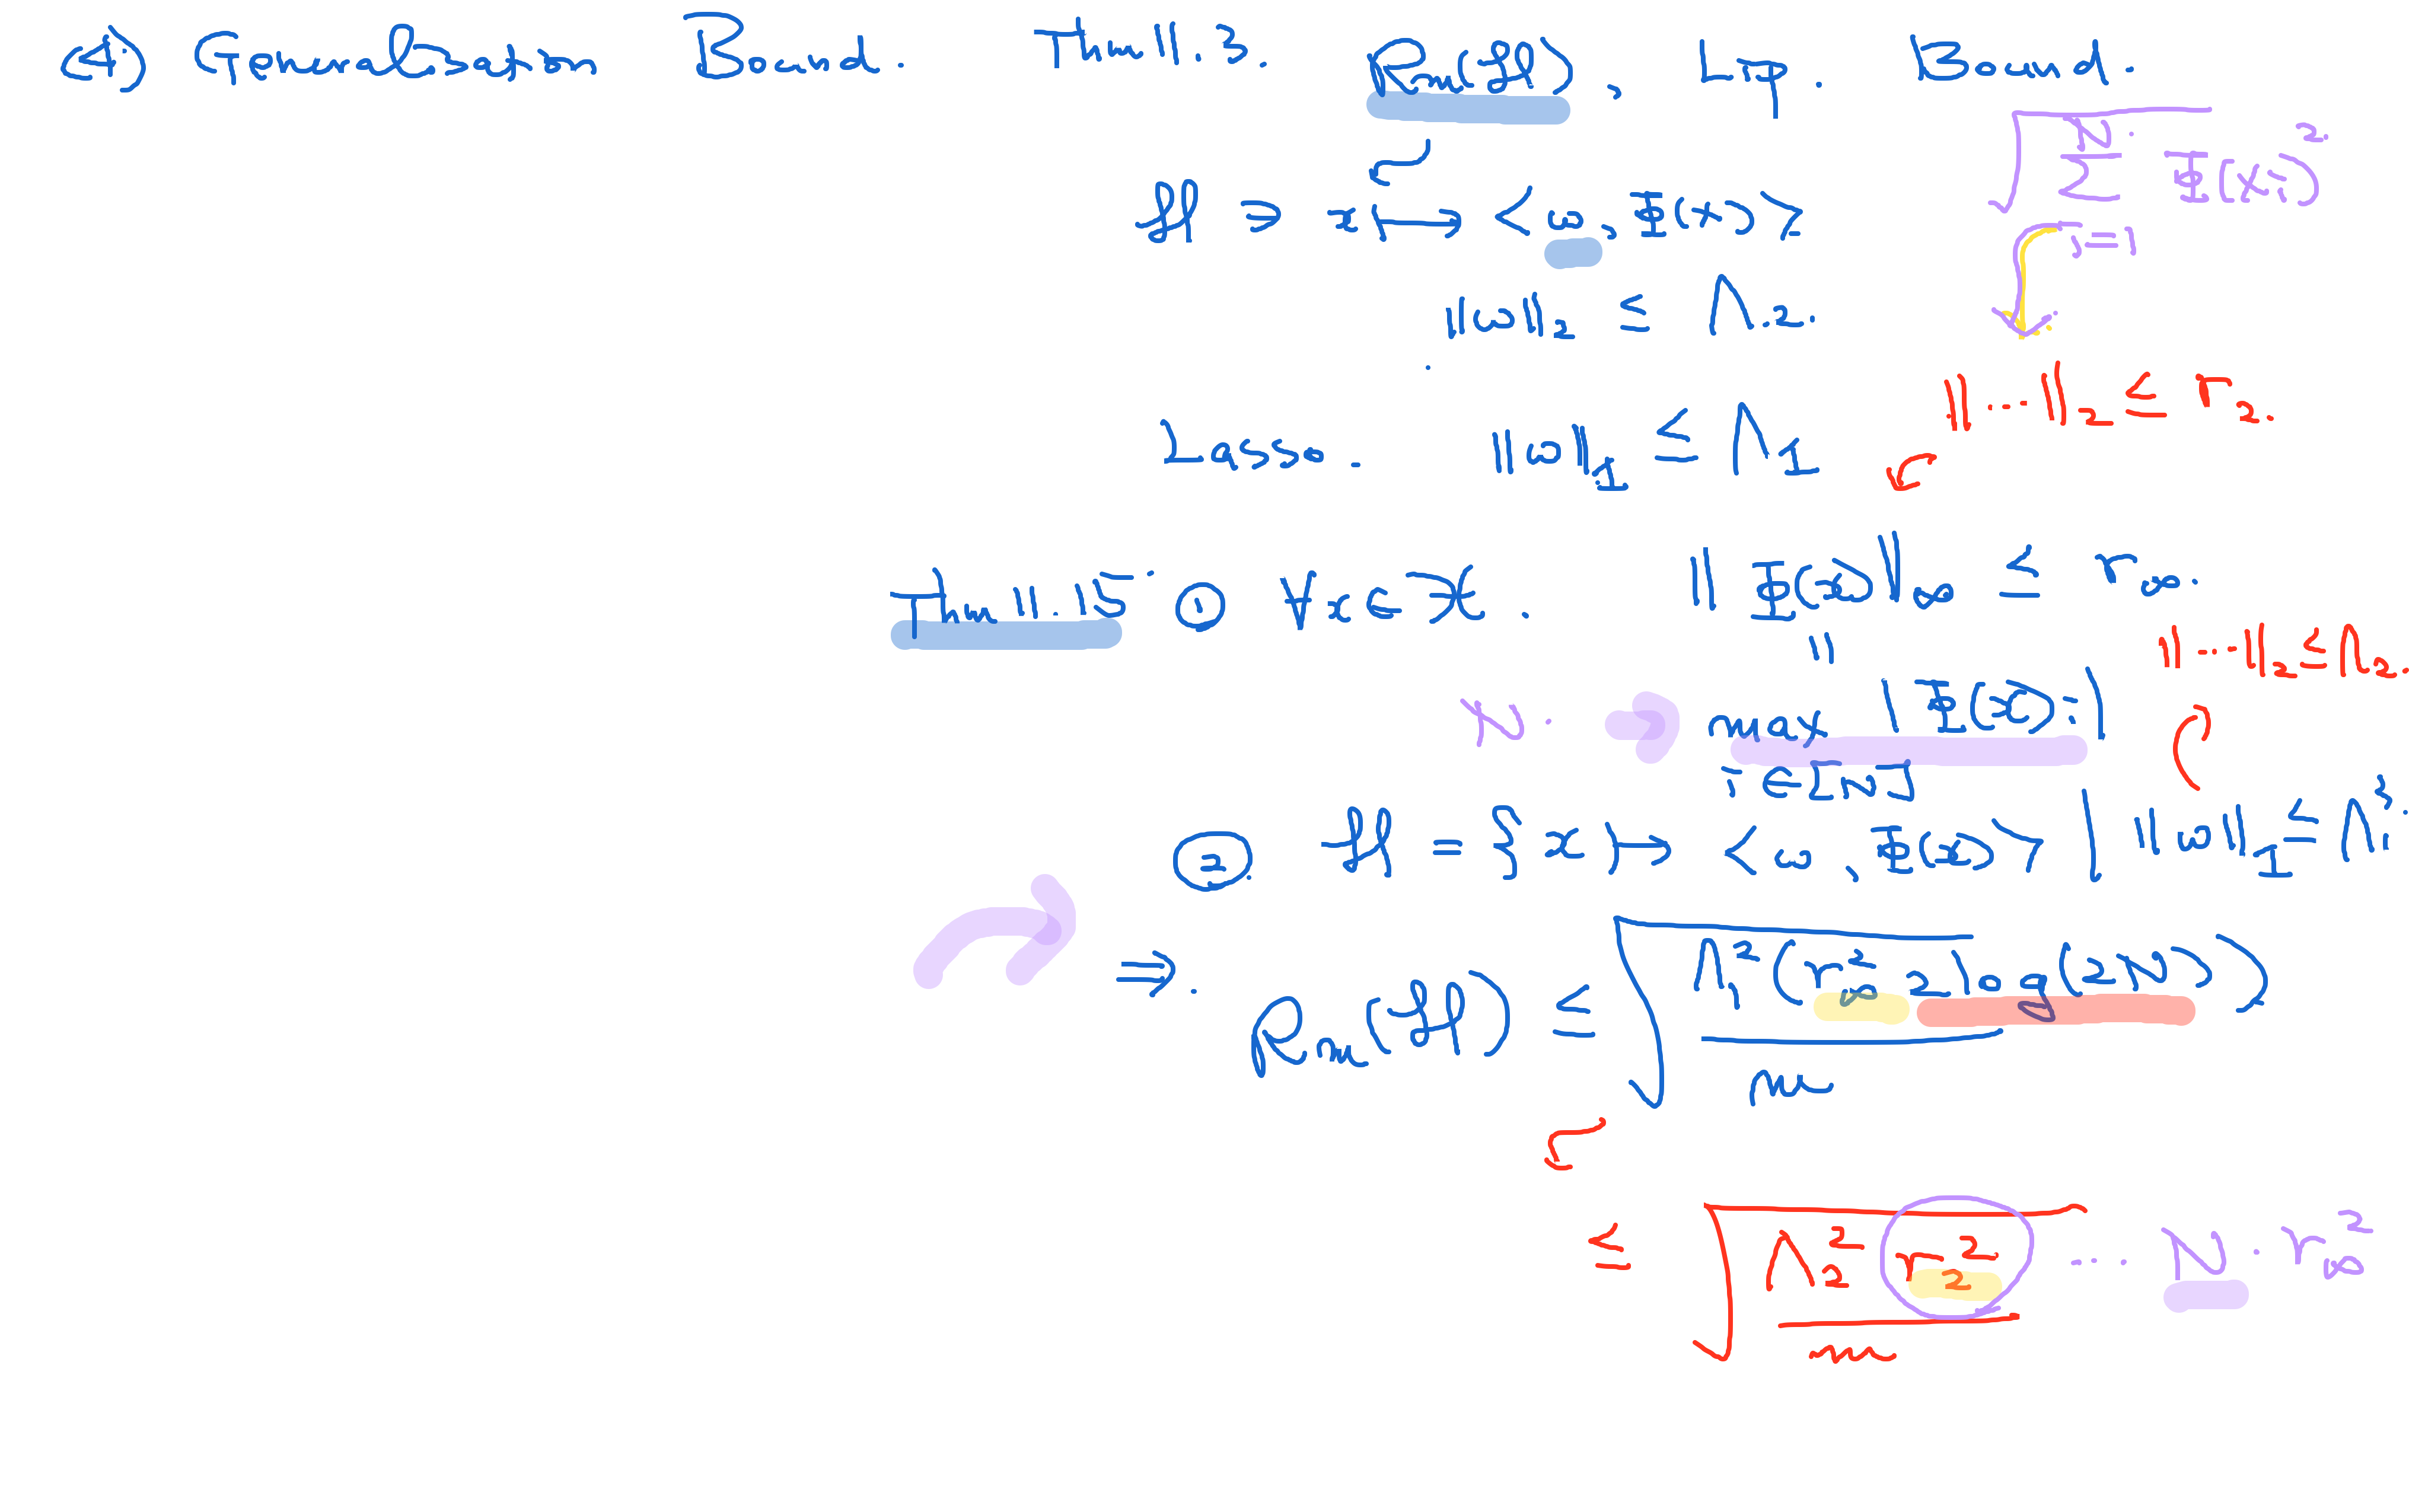 d) Generalization Bound. Thm 11.3. Rm(H), Lp. Bound.
√ Σ_{j=1}^{N} Φ(x)_j^2
H ∋ x ↦ <ω, Φ(x)>
‖ω‖_2 ≤ Λ_2.
‖...‖_2 ≤ r_2.
Lasso. ‖ω‖_1 ≤ Λ_1
Thm 11.15 ① ∀x∈X. ‖Φ(x)‖_∞ ≤ r_∞.
‖...‖_2 ≤ Λ_2.
N. → max_{i∈[N]} |Φ(x)_i|
② H = { x ↦ <ω, Φ(x)> | ‖ω‖_1 ≤ Λ_1 }
⇒. R_m(H) ≤ √ Λ_1^2 (r_∞^2 2 log(2N)) / m
≤ √ Λ_2^2 r_2^2 / m ... N · r_∞^2